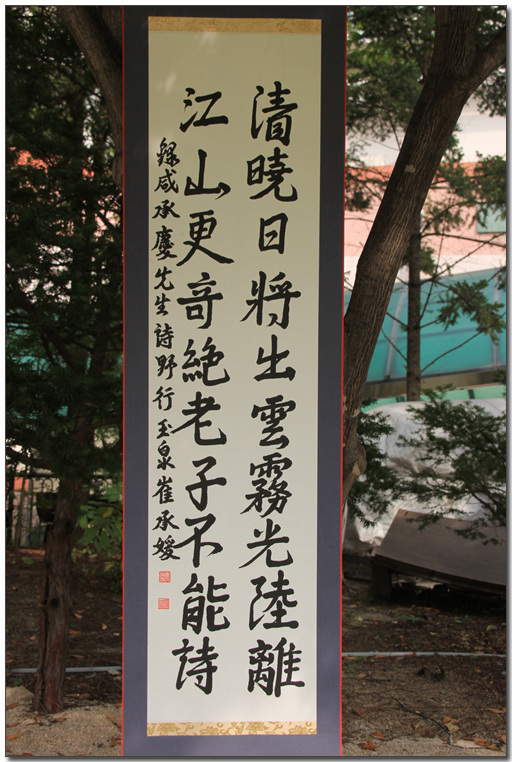 清曉日將出雲霧光陸離
江山更奇絶老子不能詩
錄咸承慶先生詩野行玉泉崔承媛